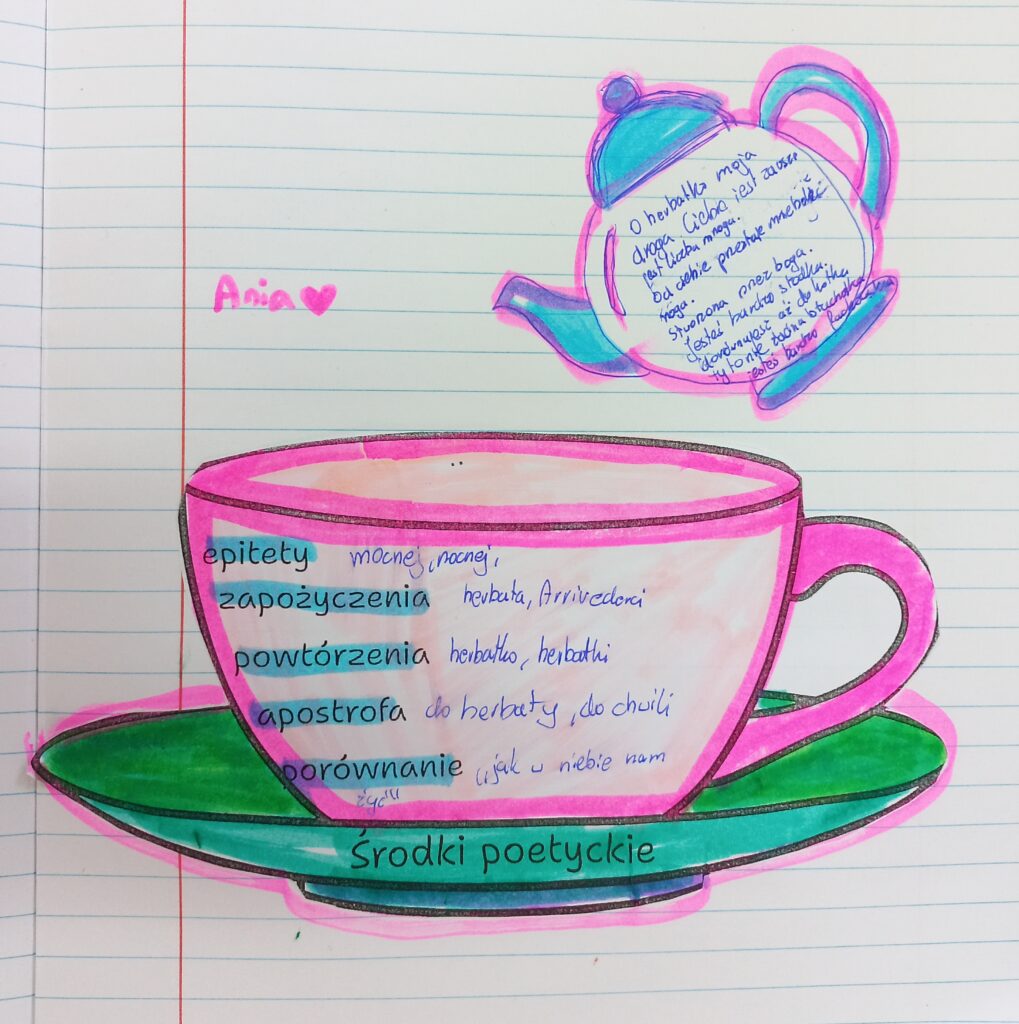 O herbatko moja
droga Ciebie jest zawsze
jest liczba mnoga.
Od ciebie przestaje mnie boleć
noga.
Stworzona przez boga.
Jesteś bardzo słodka.
dorównujesz aż do kotka
ty to nie żadna
jesteś bardzo
Ania
epitety mocnej, nocnej,
zapożyczenia herbata, Arrivederci
powtórzenia herbatko, herbatki
apostrofa do herbaty, do chwili
porównanie „jak w niebie nam
żyć"
Środki poetyckie